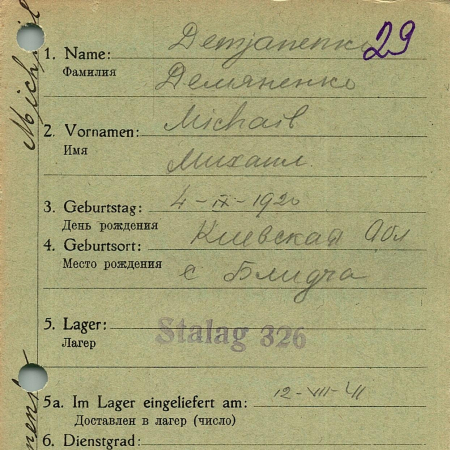 29
1. Name: Demjanenko
Фамилия Демяненко
2. Vornamen: Michail
Имя Михаил.
3. Geburtstag: 4-IX-1920
День рождения
4. Geburtsort: Киевская Обл
Место рождения с Блидча
5. Lager:
Лагер
Stalag 326
5a. Im Lager eingeliefert am: 12-VIII-41
Доставлен в лагер (число)
6. Dienstgrad: